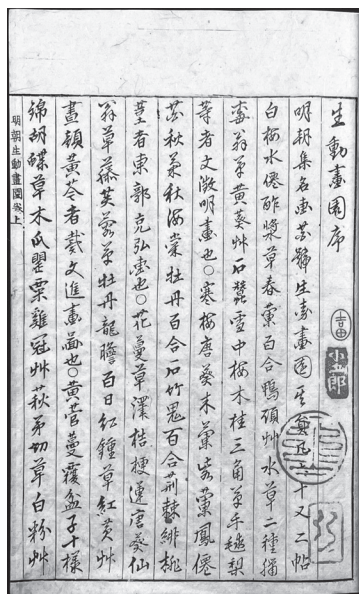 生動畫園序
明朝集名畫苦號生動畫園 上十又二帖
白梅水僊酢漿草春蘭百合鴨頭艸水草二種
毒翁草黃葵艸石蠶雪中梅木桂三角草手毬梨
等者文徵明畫也○寒梅唐葵朱蘭紫蘭鳳僊
花秋柔秋海棠牡丹百合石竹鬼百合荊棘緋桃
莖者東郭克弘畫也○花蔓草澤桔梗蓮唐葵仙
翁草藤芙蓉草牡丹龍膽百日紅鐘草紅黃艸
畫額黃芩者戴文進畫畾也○黃菅蔓覆盆子十樣
錦胡蝶草木瓜罌粟雞冠艸萩弟切草白粉艸
明朝生動畫園 上
吉田
小五郎